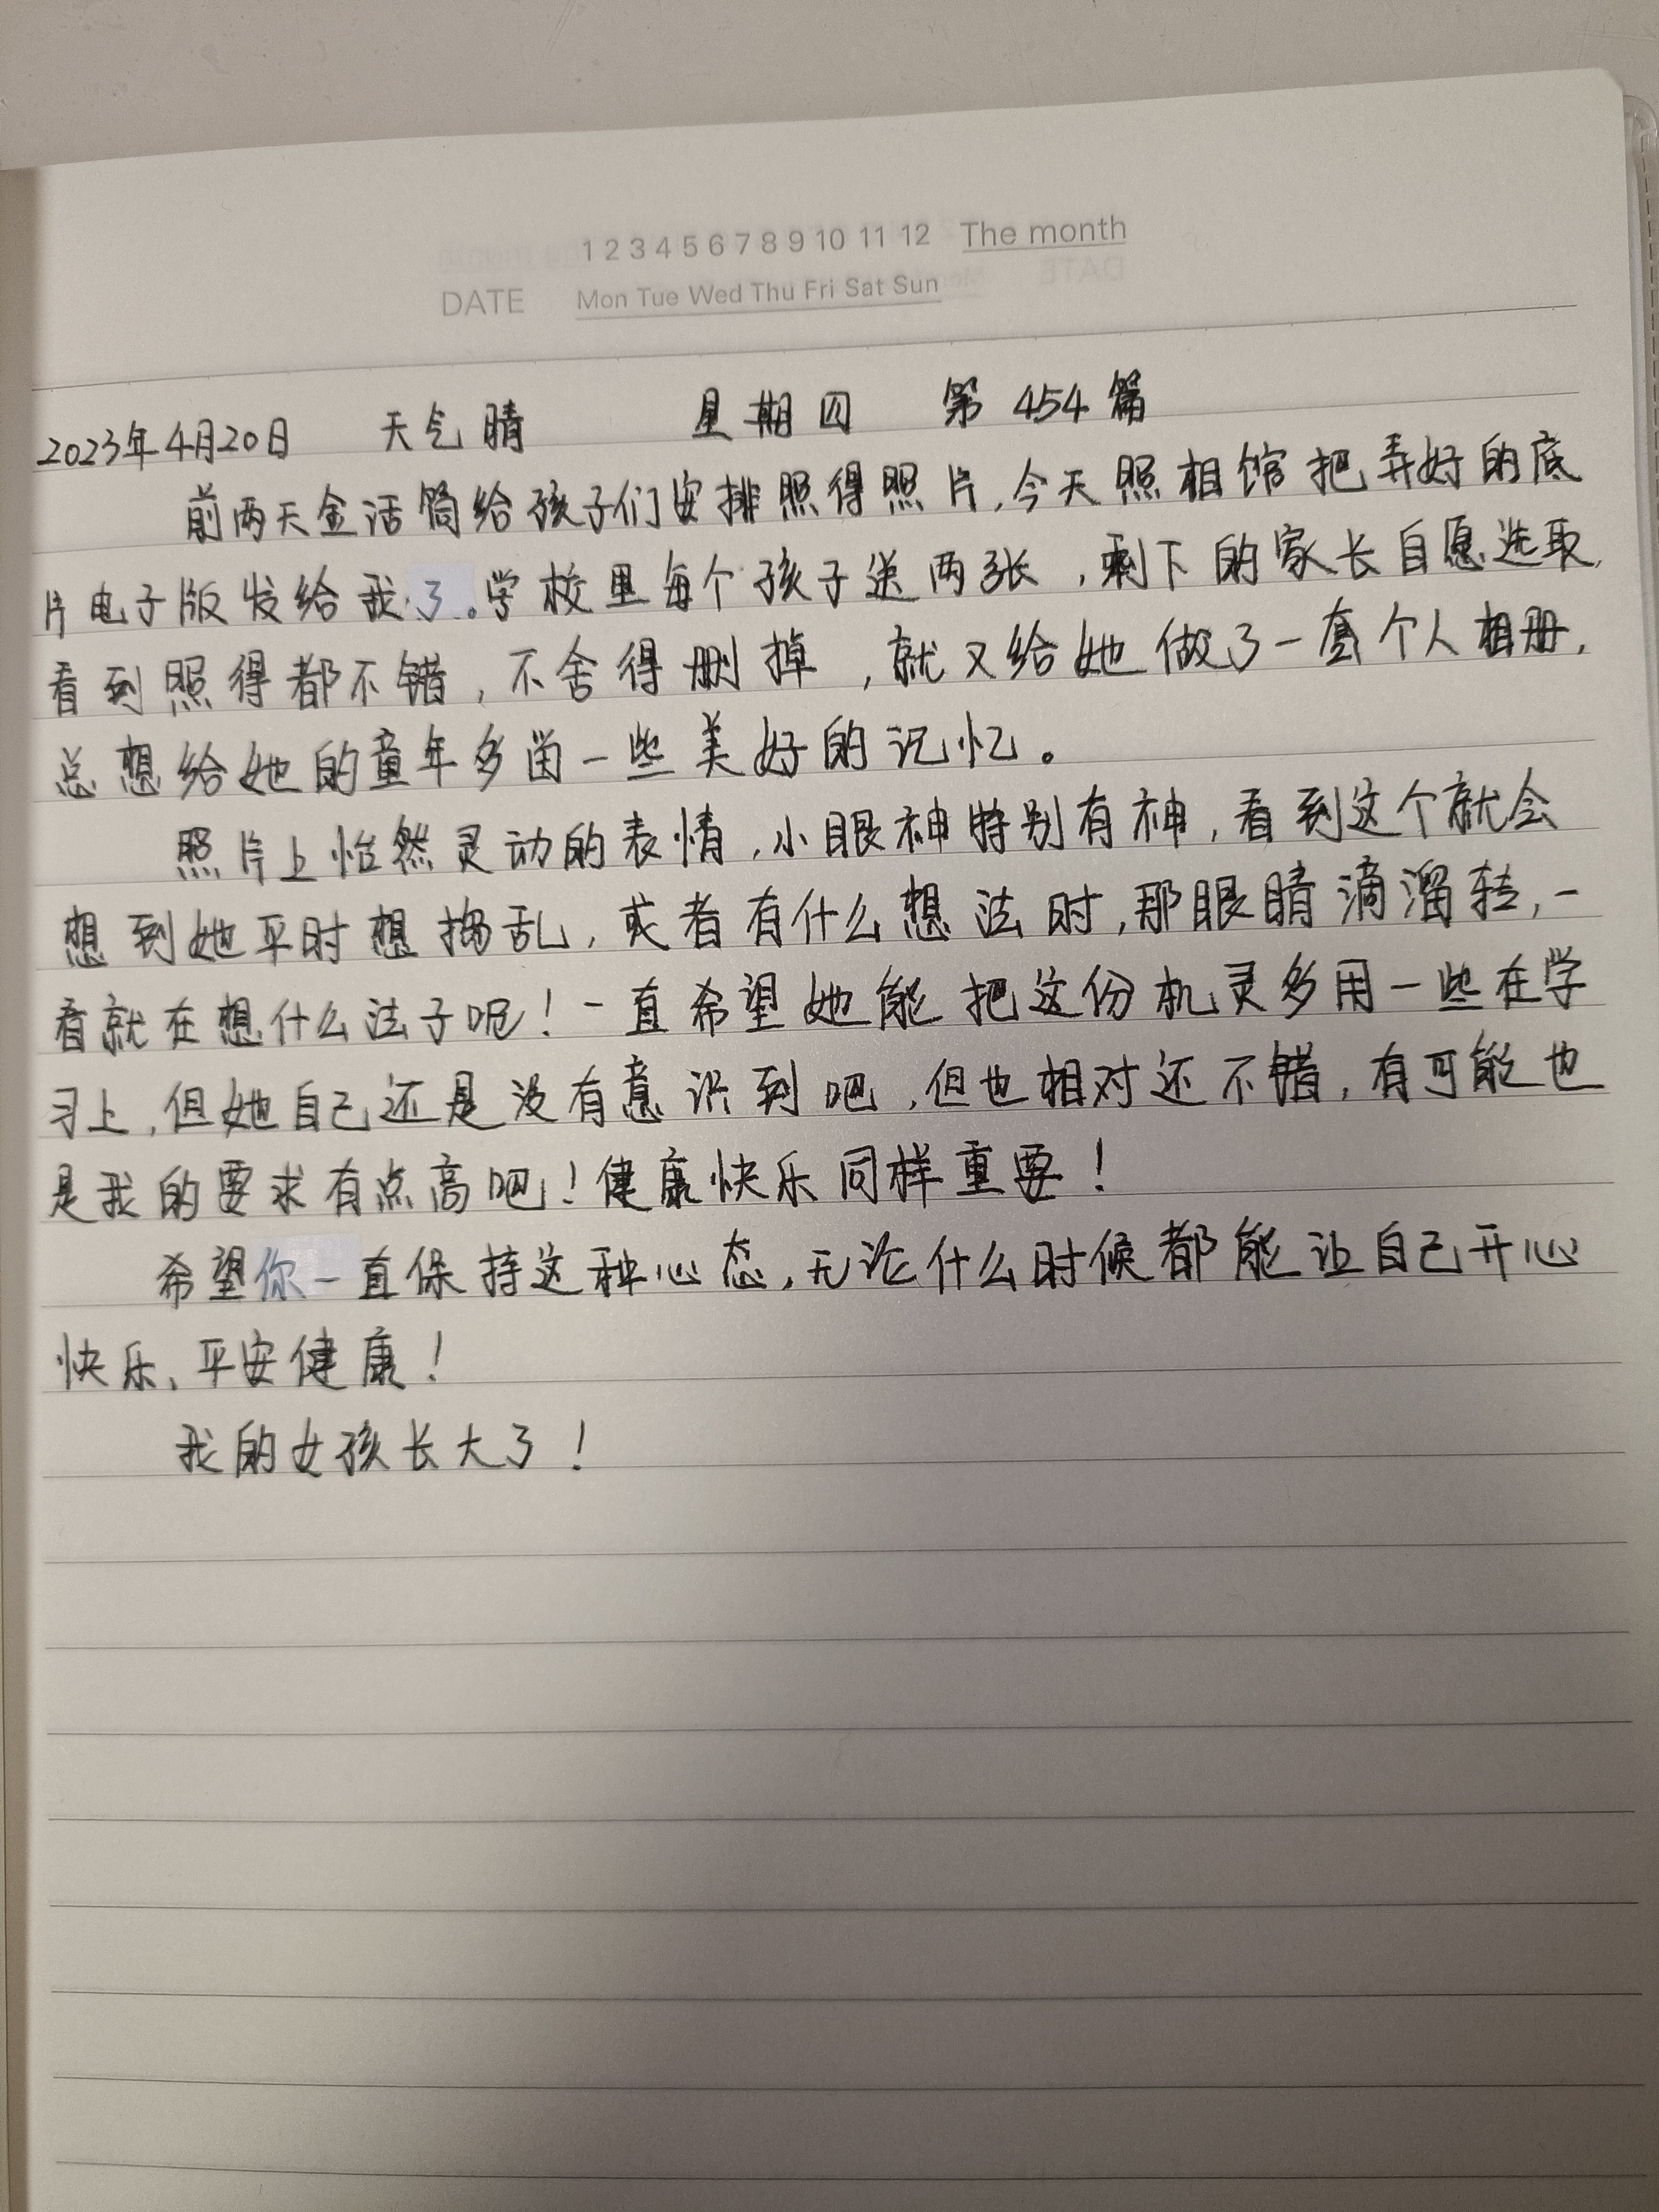 1 2 3 4 5 6 7 8 9 10 11 12 The month
DATE Mon Tue Wed Thu Fri Sat Sun
2023年4月20日 天气晴 星期四 第454篇
前两天金话筒给孩子们安排照得照片,今天照相馆把弄好的底
片电子版发给我了。学校里每个孩子送两张,剩下的家长自愿选取,
看到照得都不错,不舍得删掉,就又给她做了一套个人相册,
总想给她的童年多留一些美好的记忆。
照片上怡然灵动的表情,小眼神特别有神,看到这个就会
想到她平时想捣乱,或者有什么想法时,那眼睛滴溜转,一
看就在想什么法子呢!一直希望她能把这份机灵多用一些在学
习上,但她自己还是没有意识到吧,但也相对还不错,有可能也
是我的要求有点高吧!健康快乐同样重要!
希望你一直保持这种心态,无论什么时候都能让自己开心
快乐、平安健康!
我的女孩长大了!